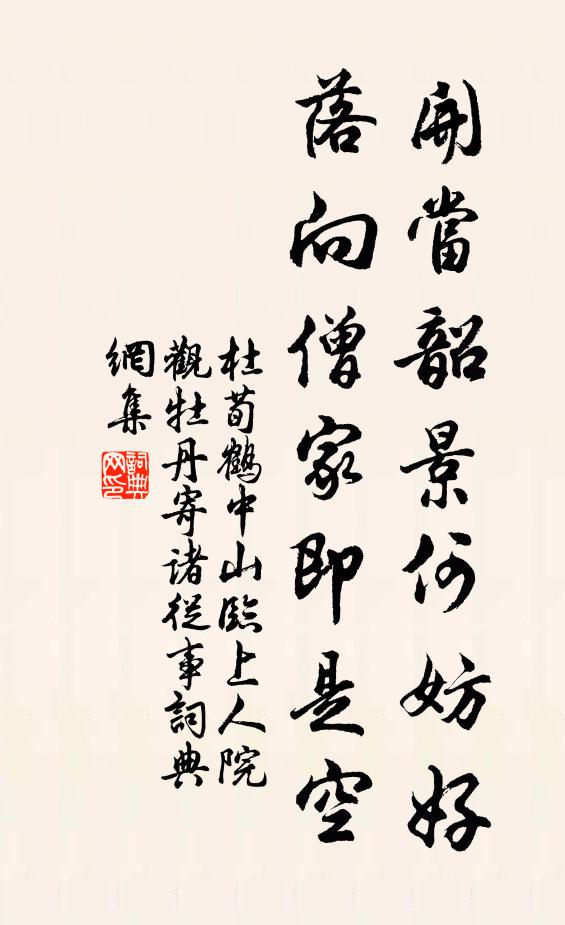 開當韶景何妨好
落向僧家即是空
杜荀鶴中山臨上人院
觀牡丹寄諸從事詞典
網集
詞典
网印